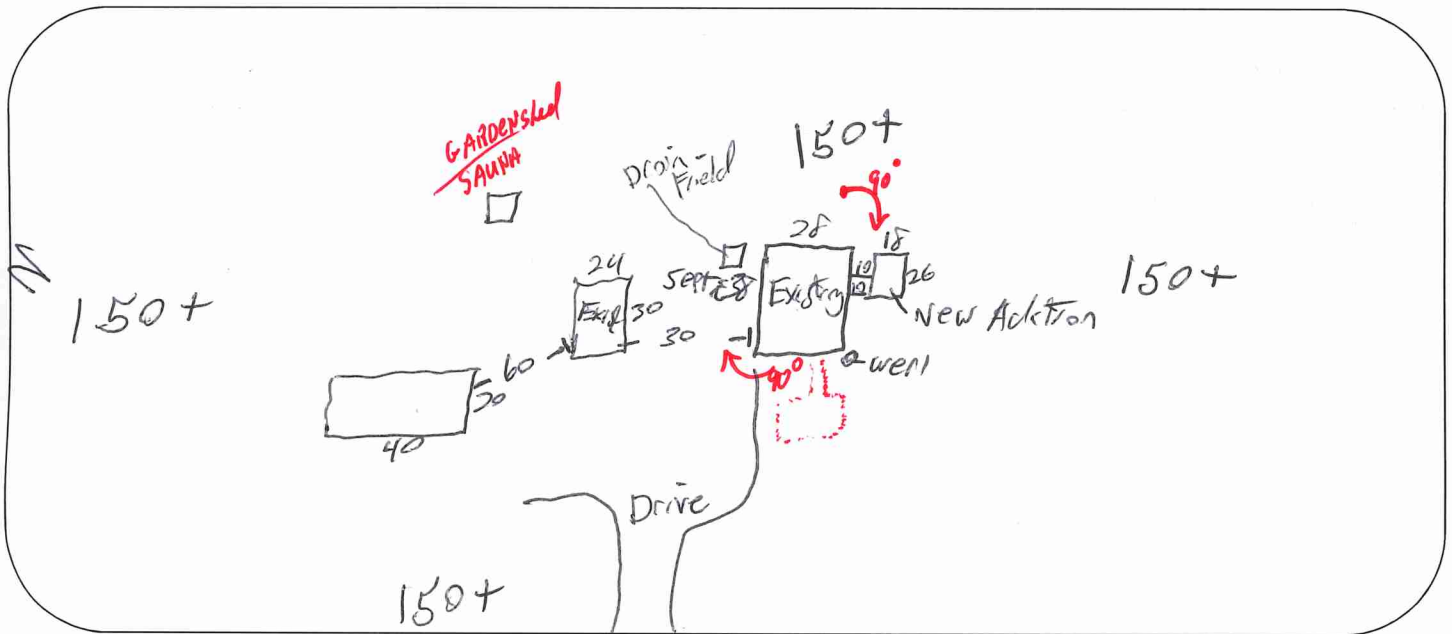 GARDENSHED
SAUNA
Drain
Field
150+
90°
28
18
24
Exist
30
30
Existing
10
10
26
New Addtion
150+
N
150+
60
90°
well
40
Drive
150+